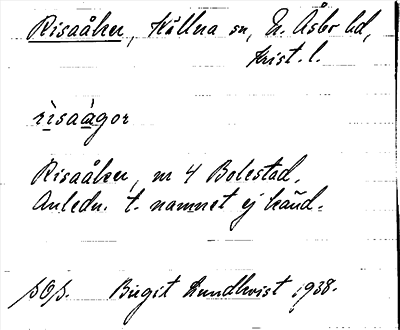 Risaåker, Källna sn, N. Åsbo hd,
Krist. l.
rìsaàgor
Risaåker, nr 4 Bolestad.
Anledn. t. namnet ej känd.
SOS. Birgit Lundkvist 1938.